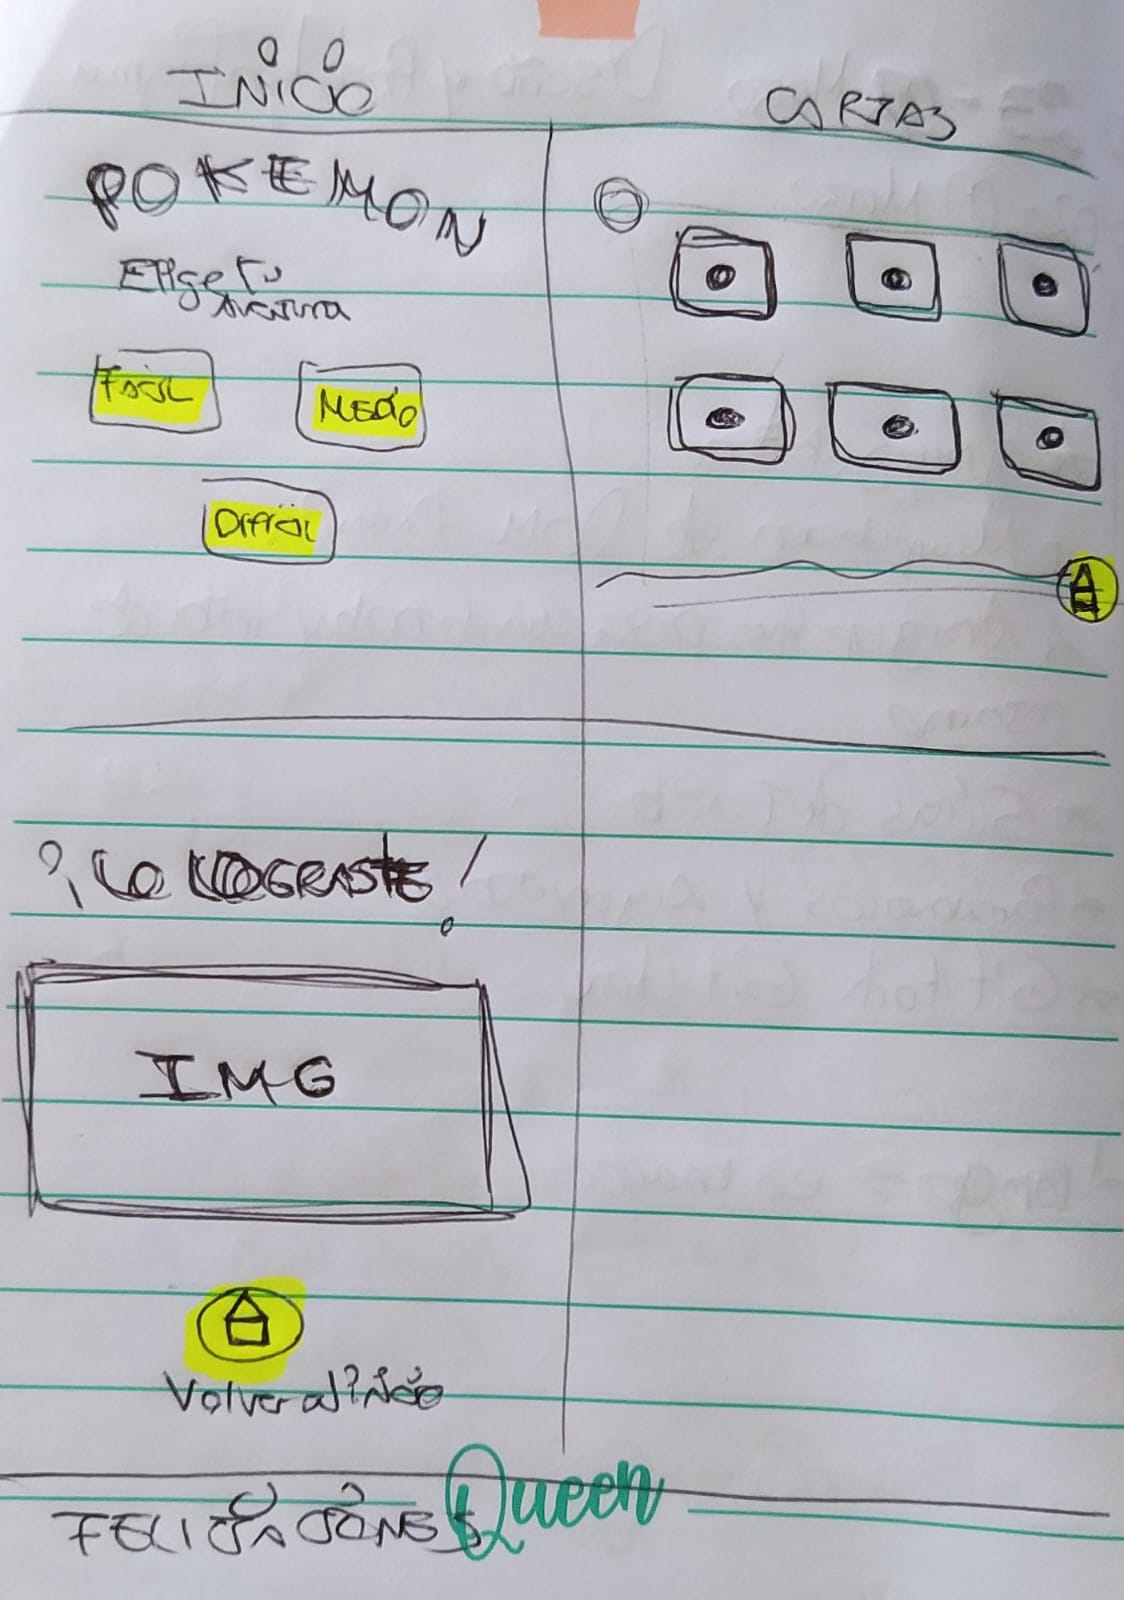 INICIO
CARTAS
POKEMON
Elige tu
Aventura
Facil
Medio
Dificil
¿Lo LOGRASTE!
IMG
Volver al inicio
FELICIDADES
Queen